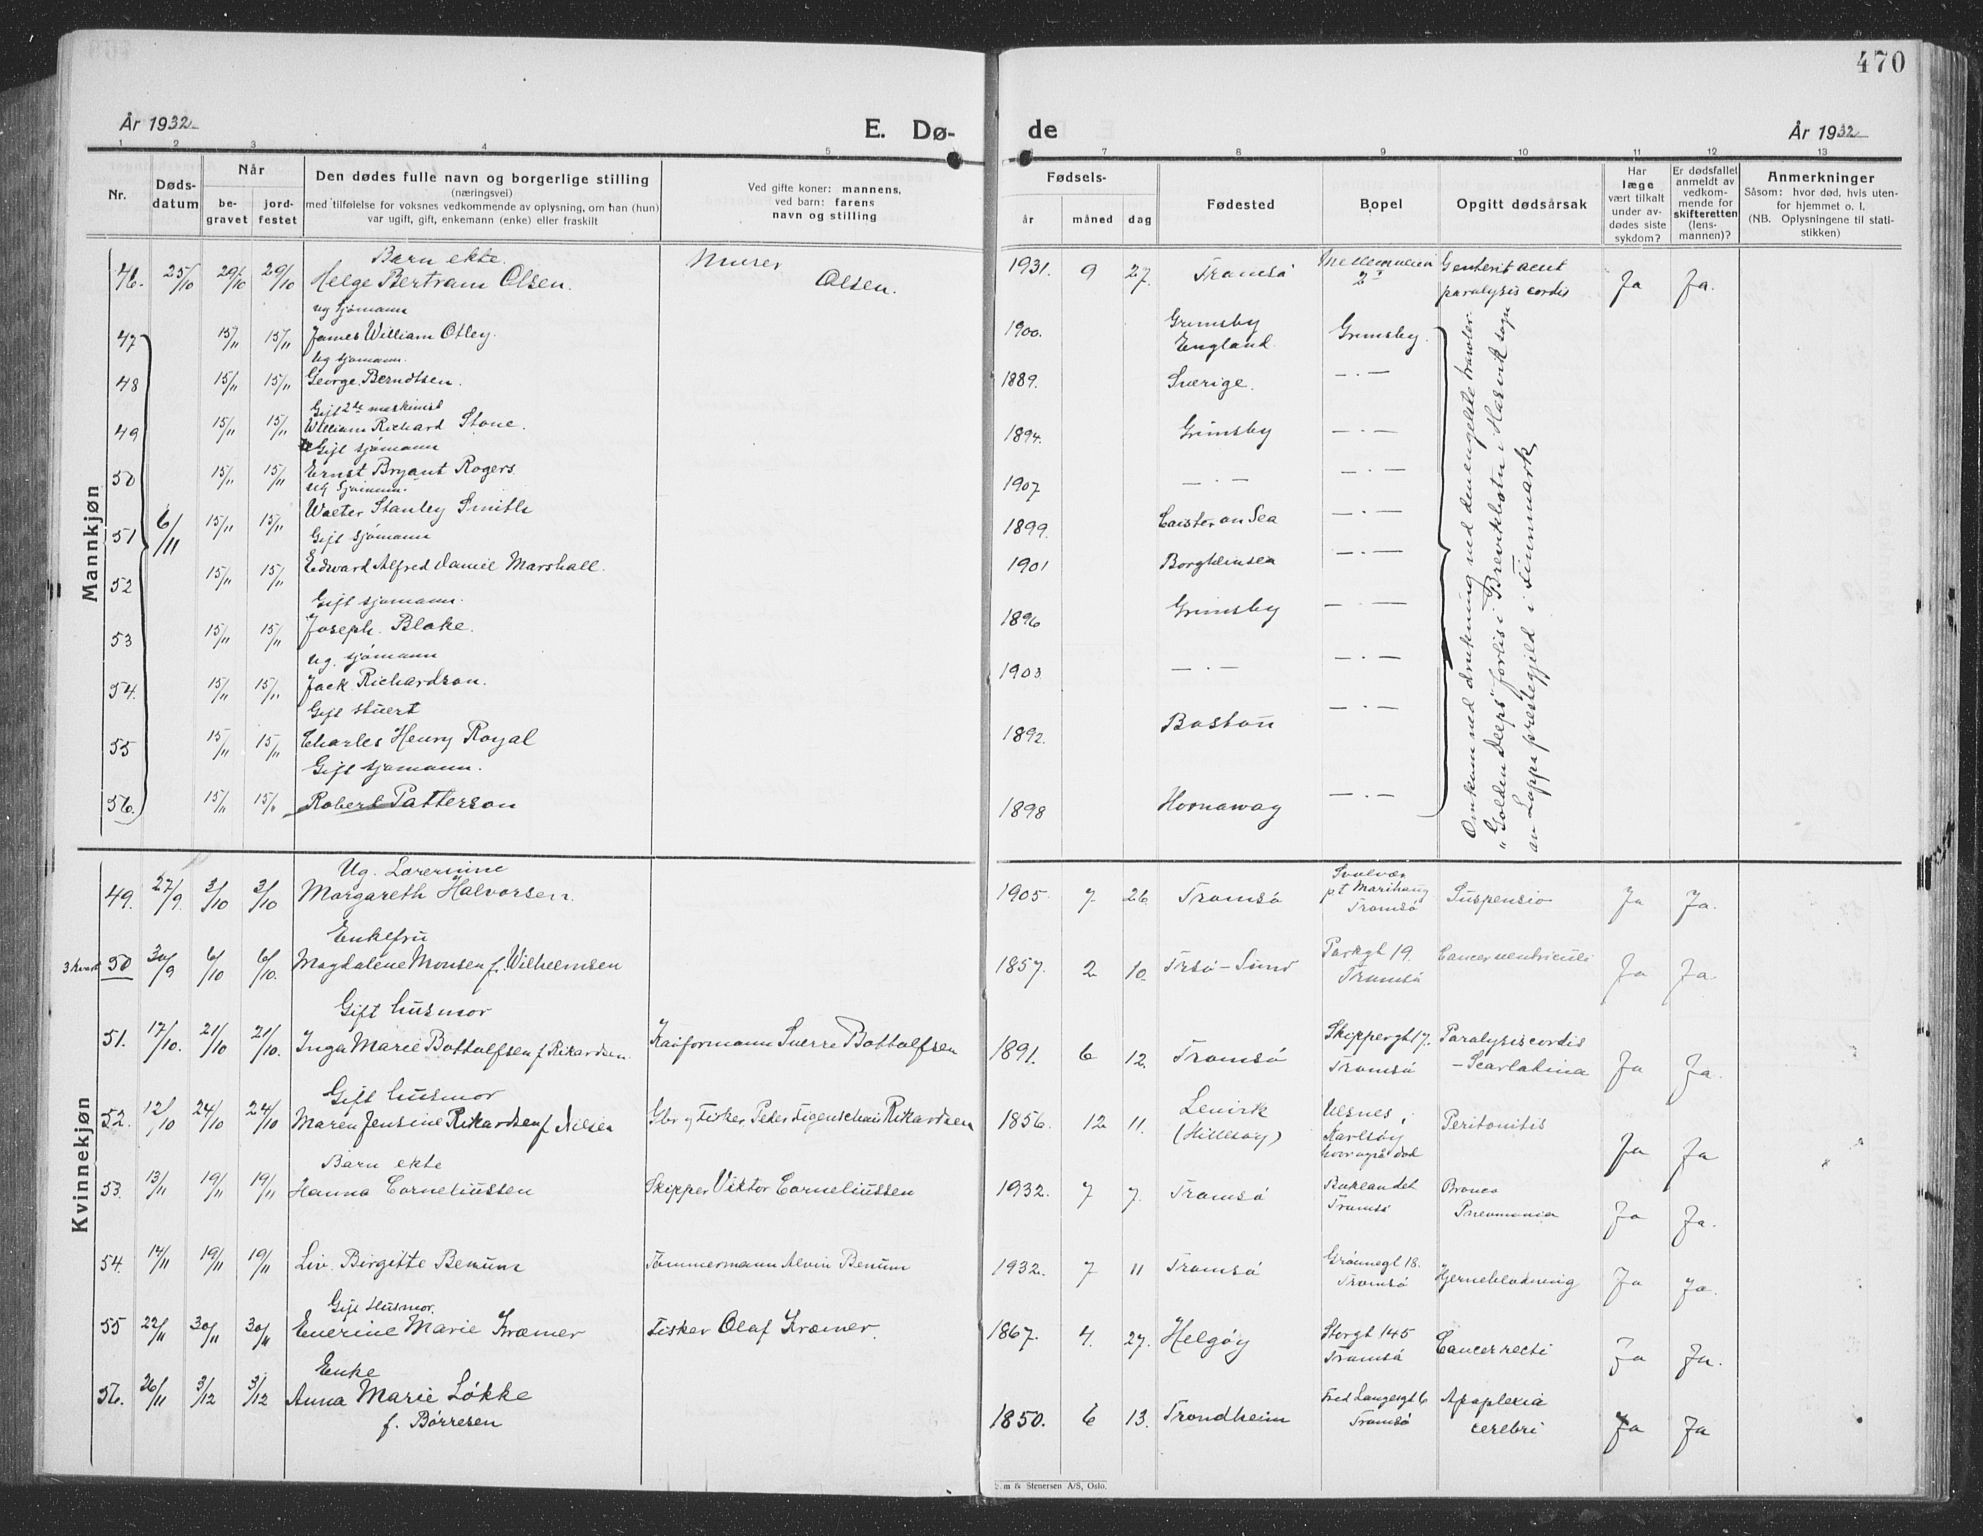 470
År 1932
E. Dø-
de
År 1932
1 2 3 4 5 6 7 8 9 10 11 12 13
Nr.
Døds-
datum
Når
be-
gravet
jord-
festet
Den dødes fulle navn og borgerlige stilling
(næringsvei)
med tilføielse for voksnes vedkommende av oplysning, om han (hun)
var ugift, gift, enkemann (enke) eller fraskilt
Ved gifte koner: mannens,
ved barn: farens
navn og stilling
Fødsels-
år
måned
dag
Fødested
Bopel
Opgitt dødsårsak
Har
læge
vært tilkalt
under av-
dødes siste
sykdom?
Er dødsfallet
anmeldt av
vedkom-
mende for
skifteretten
(lens-
mannen)?
Anmerkninger
Såsom: hvor død, hvis uten-
for hjemmet o. l.
(NB. Oplysningene til stati-
stikken)
Mannkjøn
Barn ekte.
46. 25/10 29/10 29/10 Helge Bertram Olsen. Murer Olsen. 1931. 9 27. Tromsø paralysis cordis Ja Ja.
ug sjømann
47 15/11 15/11 James William Otley. 1900. Grimsby England. Grimsby.
ug sjømann.
48 15/11 15/11 George Berndtsen. 1889. Sverige. — . —
Gift 2de maskinist
49 15/11 15/11 William Richard Stone. 1894. Grimsby — . —
Gift sjømann
50 15/11 15/11 Ernst Bryant Rogers. 1907 — . — — . —
ug sjømann.
51 6/11 15/11 15/11 Walter Stanley Smith 1899. Caister on Sea — . —
Gift sjømann
52 15/11 15/11 Edward Alfred Daniel Marshall. 1901 — . —
Gift sjømann.
53 15/11 15/11 Joseph. Blake. 1896 Grimsby — . —
ug. sjømann
54. 15/11 15/11 Jack Richardson. 1903 — . — — . —
Gift stuert
55 15/11 15/11 Charles Henry Royal 1892. Boston — . —
Gift sjømann.
56. 15/11 15/11 Robert Patterson 1898 Hornaway — . —
Omkom ved drukning ved den engelske tråler
"Golden Deeps" forlis i Brevikbotn i Hasvik sogn
av Loppa prestegjeld i Finnmark
Kvinnekjøn
Ug. Lærerinne
49. 27/9. 3/10 3/10 Margareth Halvorsen. 1905. 7 26 Tromsø Svolvær pt Marihaug Tromsø Suspensio Ja Ja.
Enkefru
3 kvart 50 30/9 6/10 6/10. Magdalene Monsen f. Wilhelmsen 1857. 2 10. Trsø-Sund Parkgt 19. Tromsø Cancer ventriculi Ja Ja
Gift husmor
51. 17/10. 21/10 21/10. Inga Marie Bottolfsen f. Rikardsen Sverre Bottolfsen 1891. 6 12. Tromsø Skippergt 17. Tromsø Paralysis cordis – Scarlatina Ja Ja.
Gift husmor
52. 12/10 24/10 24/10 Maren Jensine Rikardsen f Nilsen Gbr og Fisker Peder Figenschau Rikardsen 1856. 12 11. Lenvik (Hillesøy) Ulsnes, Karlsøy hvor også død Peritonitis Ja Ja
Barn ekte
53. 13/11 19/11 19/11 Hanna Corneliussen Skipper Viktor Corneliussen 1932. 7 7. Tromsø Tromsø Bronco Pneumonia Ja Ja.
54. 14/11 19/11 19/11 Liv. Birgitte Benum Tømmermann Alvin Benum 1932. 7 11 Tromsø Grønnegt 18. Tromsø Hjerneblødning Ja Ja.
Gift Husmor.
55 22/11 30/11 30/11 Enerine Marie Kræmer Fisker Olaf Kræmer. 1867. 4. 27. Helgøy Storgt 145 Tromsø Cancer recti Ja Ja.
Enke
56. 26/11 3/12 3/12 Anna Marie Løkke f. Børresen 1850. 6 13. Trondheim Fred Langesgt 6 Tromsø Apoplexia cerebri Ja Ja
m & Stenersen A/S, Oslo.